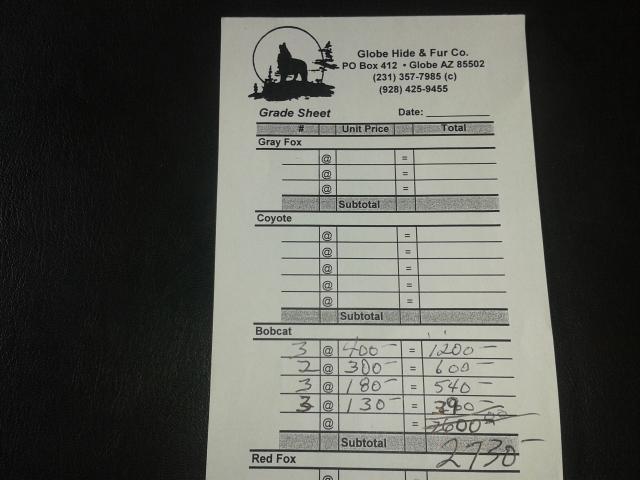 Globe Hide & Fur Co.
PO Box 412 • Globe AZ 85502
(231) 357-7985 (c)
(928) 425-9455
Grade Sheet Date:
# Unit Price Total
Gray Fox
@ =
@ =
@ =
Subtotal
Coyote
@ =
@ =
@ =
@ =
@ =
Subtotal
Bobcat
3 @ 400— = 1200—
2 @ 300— = 600—
3 @ 180— = 540—
3 @ 130— = 390—
@ =
Subtotal 2730—
Red Fox
@ =